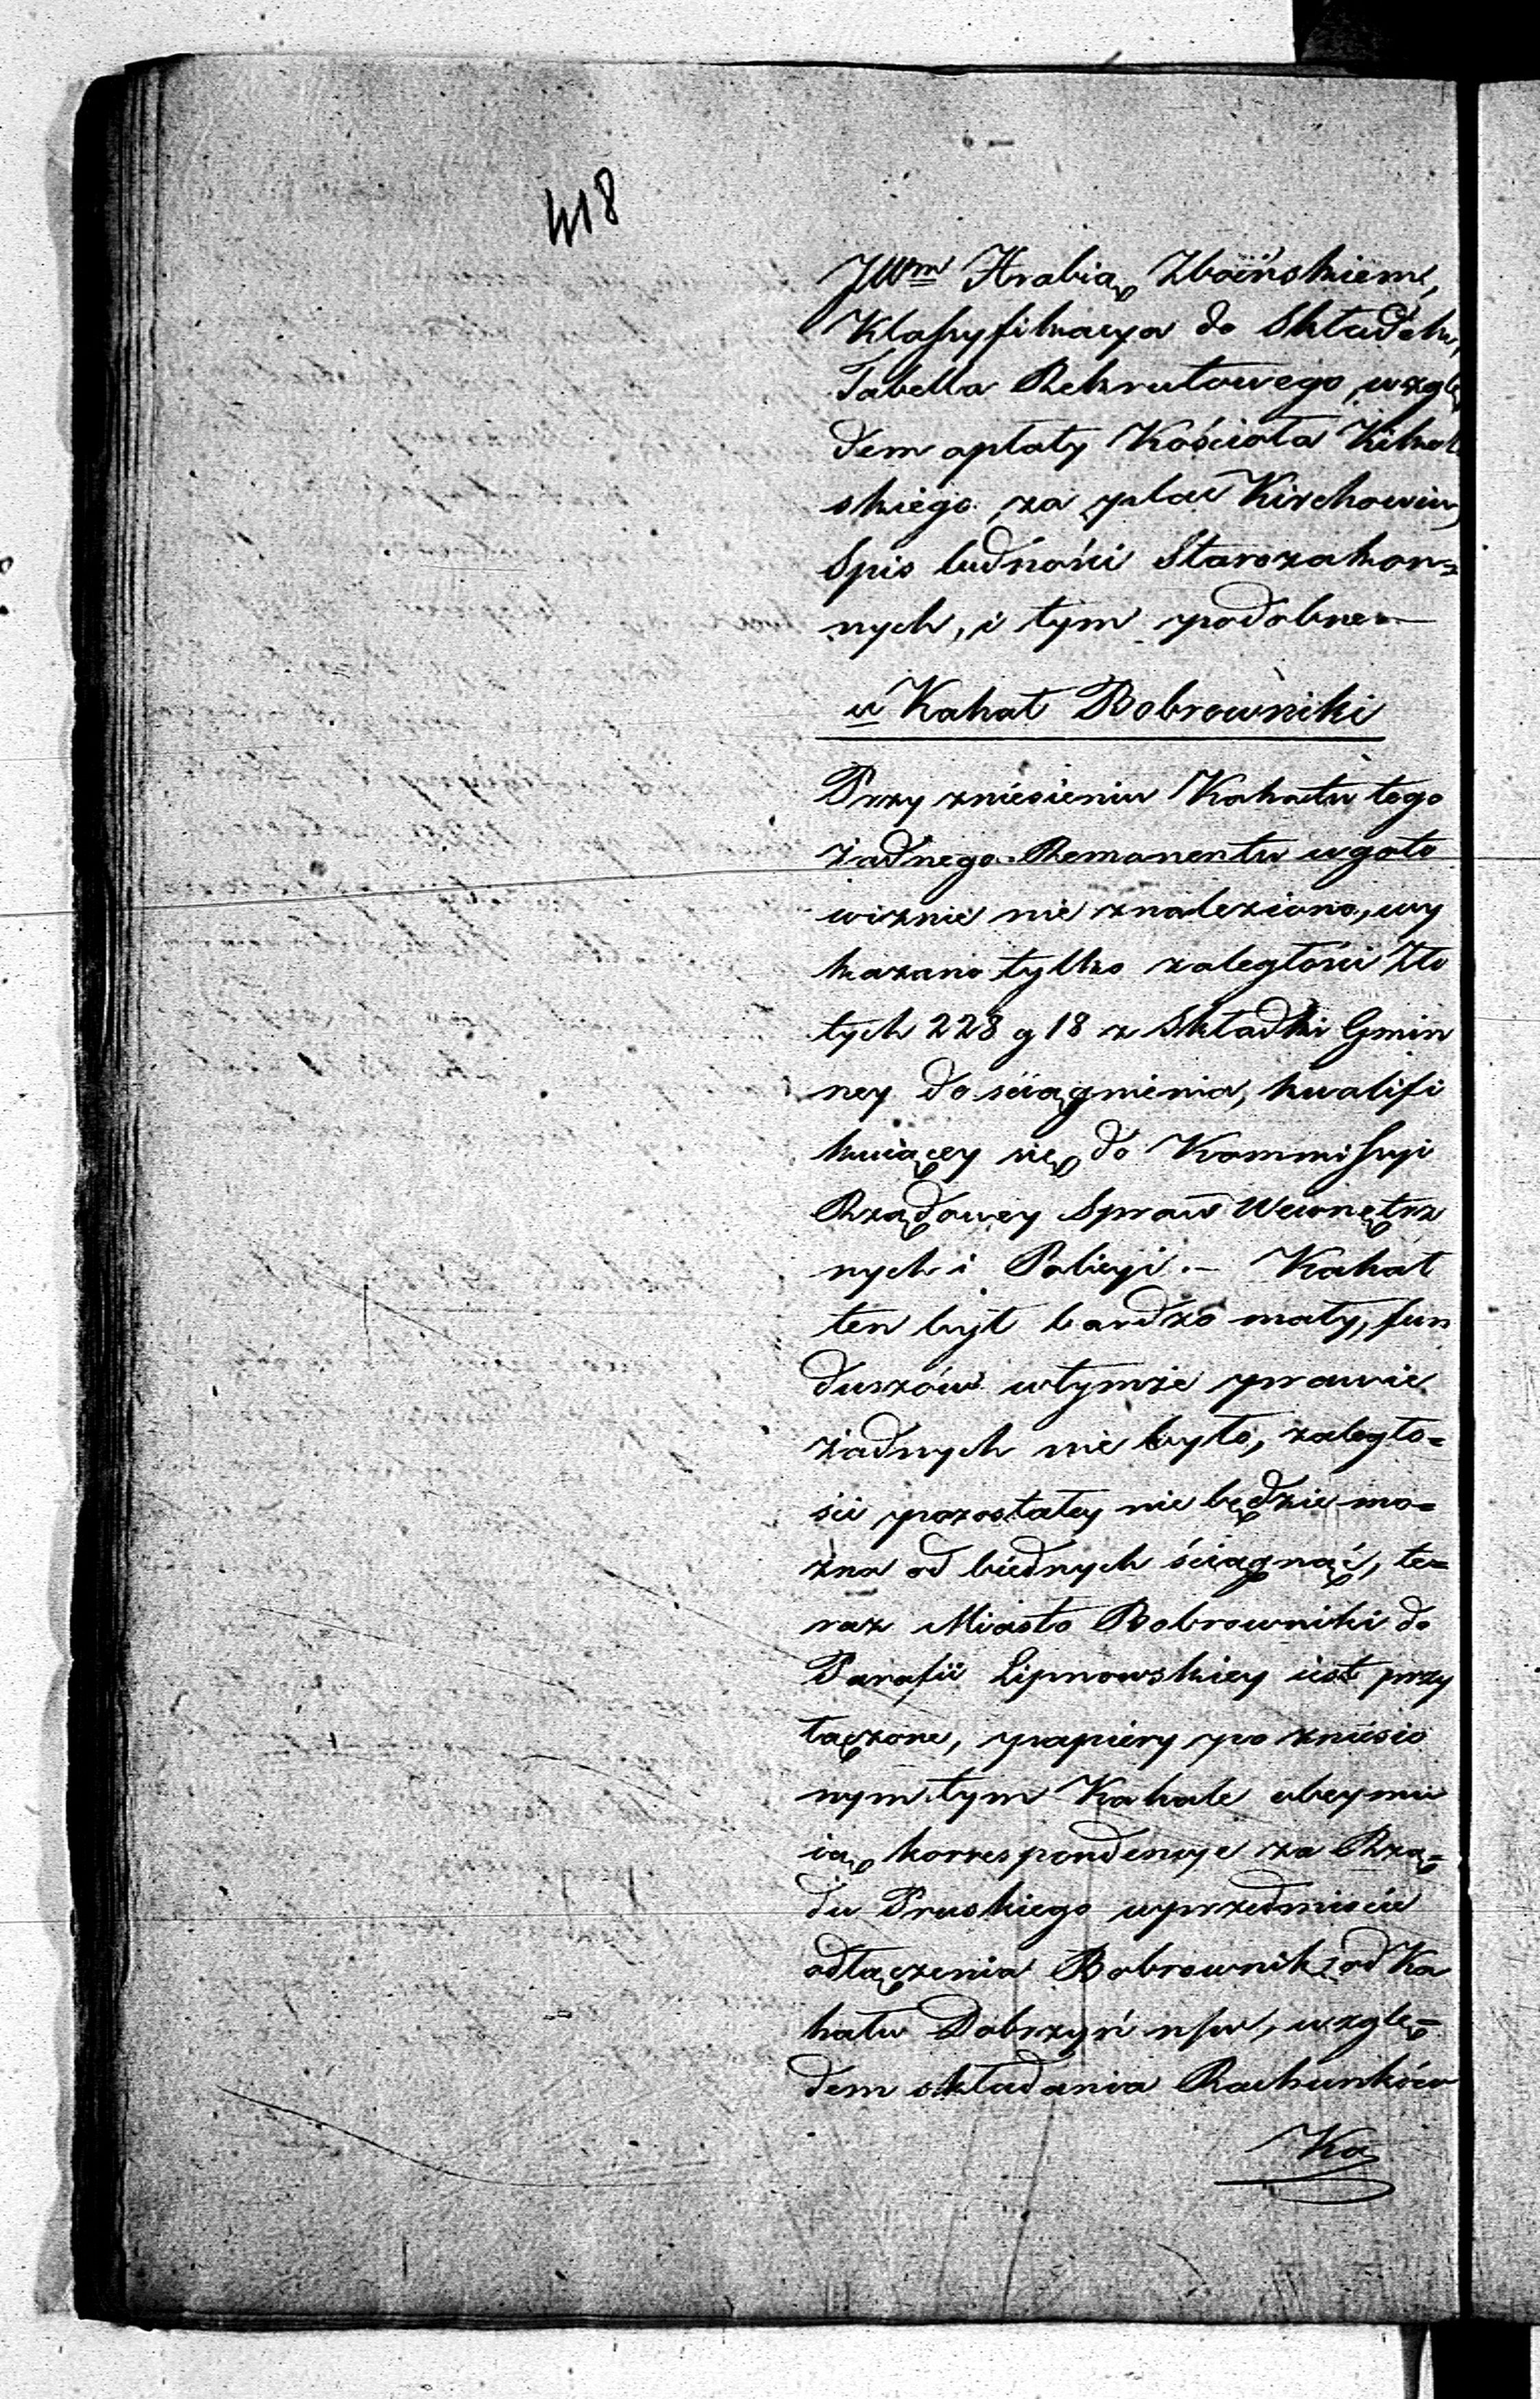 418
JWm Hrabią Zboińskiem,
Klassyfikacya do Składek,
Tabella Rekrutowego, wzglę
dem opłaty Kościoła Kikol
skiego za plac Kirchowiu,
Spis ludności Starozakon=
nych, i tym podobne.—
u Kahał Bobrowniki
Przy zniesieniu Kahału tego
żadnego Remanentu w goto
wiznie nie znaleziono, wy
kazano tylko zaległości Zło
tych 228 g 18 z Składki Gmin
ney do ściągnienia, kwalifi
kuiącey się do Kommissyi
Rządowey Spraw Wewnętrz
nych i Policyi.— Kahał
ten był bardzo mały, fun
duszów w tymże prawie
żadnych nie było, zaległo=
ści pozostałey nie będzie mo=
żna od biednych ściągnąć, te=
raz Miasto Bobrowniki do
Parafii Lipnowskiey iest przy
łączone, papiery po zniesio
nym tym Kahale obeymu
ią korrespondencye za Rzą=
du Pruskiego w przedmiocie
odłączenia Bobrownik od Ka
hału Dobrzyń n/w, wzglę=
dem składania Rachunków
Ka